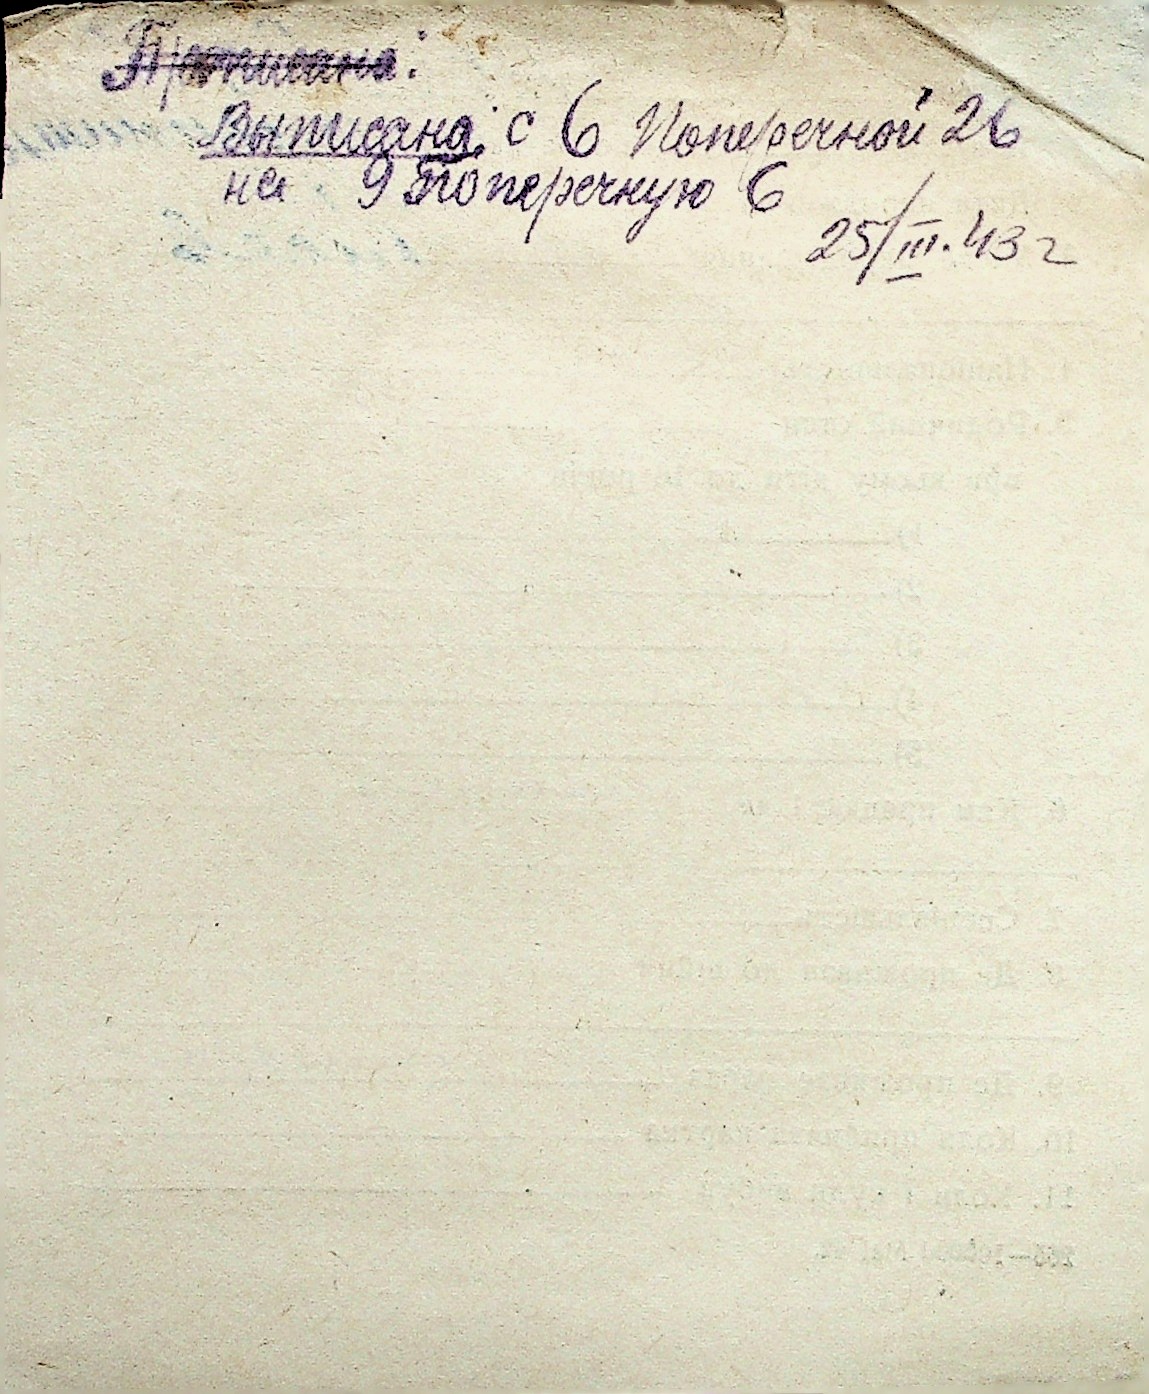 Прописана:
Выписана: с 6 Поперечной 26
на 9 Поперечную 6
25/III. 43 г